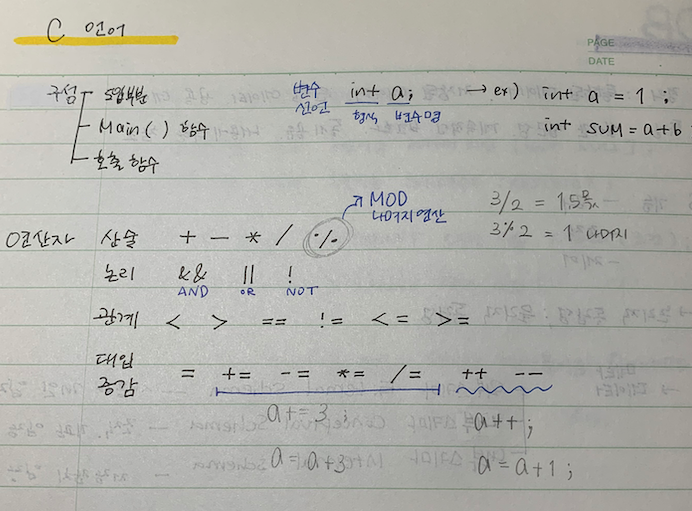 C 언어
PAGE
DATE
구성 도입부분
Main( ) 함수
호출 함수
변수 선언 int a; → ex) int a = 1 ;
형식 변수명 int SUM = a+b
→ MOD
나머지연산
3/2 = 1.5 몫
3%2 = 1 나머지
연산자 산술 + - * / %
논리 && || !
AND OR NOT
관계 < > == != <= >=
대입
증감 = += -= *= /= ++ --
a+=3; a++;
a=a+3 a=a+1;